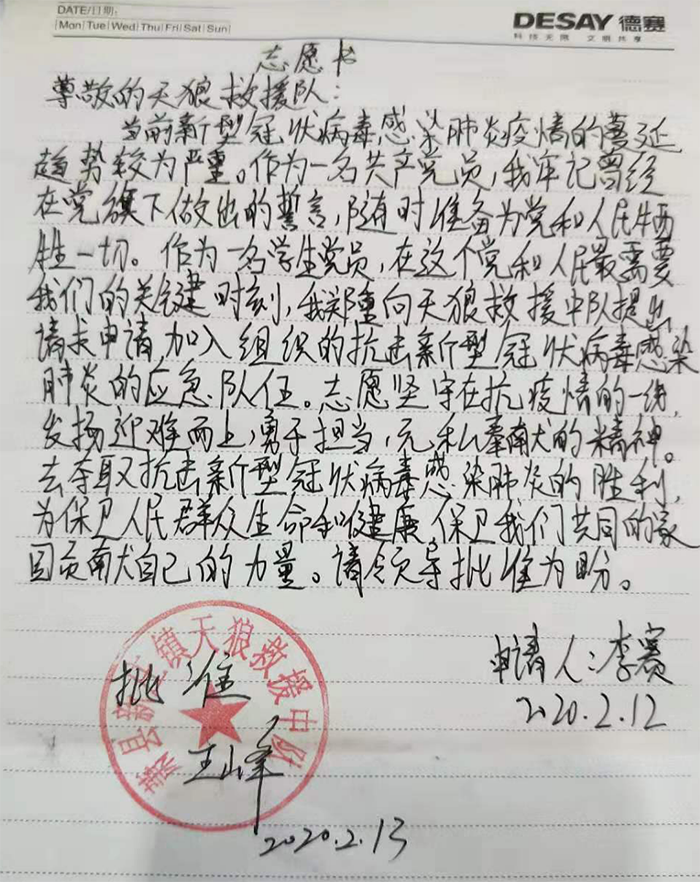 DATE/日期:
Mon Tue Wed Thu Fri Sat Sun
DESAY 德赛
科技无限 文明共享
志愿书
尊敬的天狼救援队:
当前新型冠状病毒感染肺炎疫情的蔓延
趋势较为严重。作为一名共产党员,我牢记曾经
在党旗下做出的誓言,随时准备为党和人民牺
牲一切。作为一名学生党员,在这个党和人民最需要
我们的关键时刻,我郑重向天狼救援中队提出
请求申请,加入组织的抗击新型冠状病毒感染
肺炎的应急队伍。志愿坚守在抗疫情的一线,
发扬迎难而上,勇于担当,无私奉献的精神。
去夺取抗击新型冠状病毒感染肺炎的胜利,
为保卫人民群众生命和健康,保卫我们共同的家
园贡献自己的力量。请领导批准为盼。
申请人:李赛
2020.2.12
县 镇天狼救援中队
批准
王山峰
2020.2.13